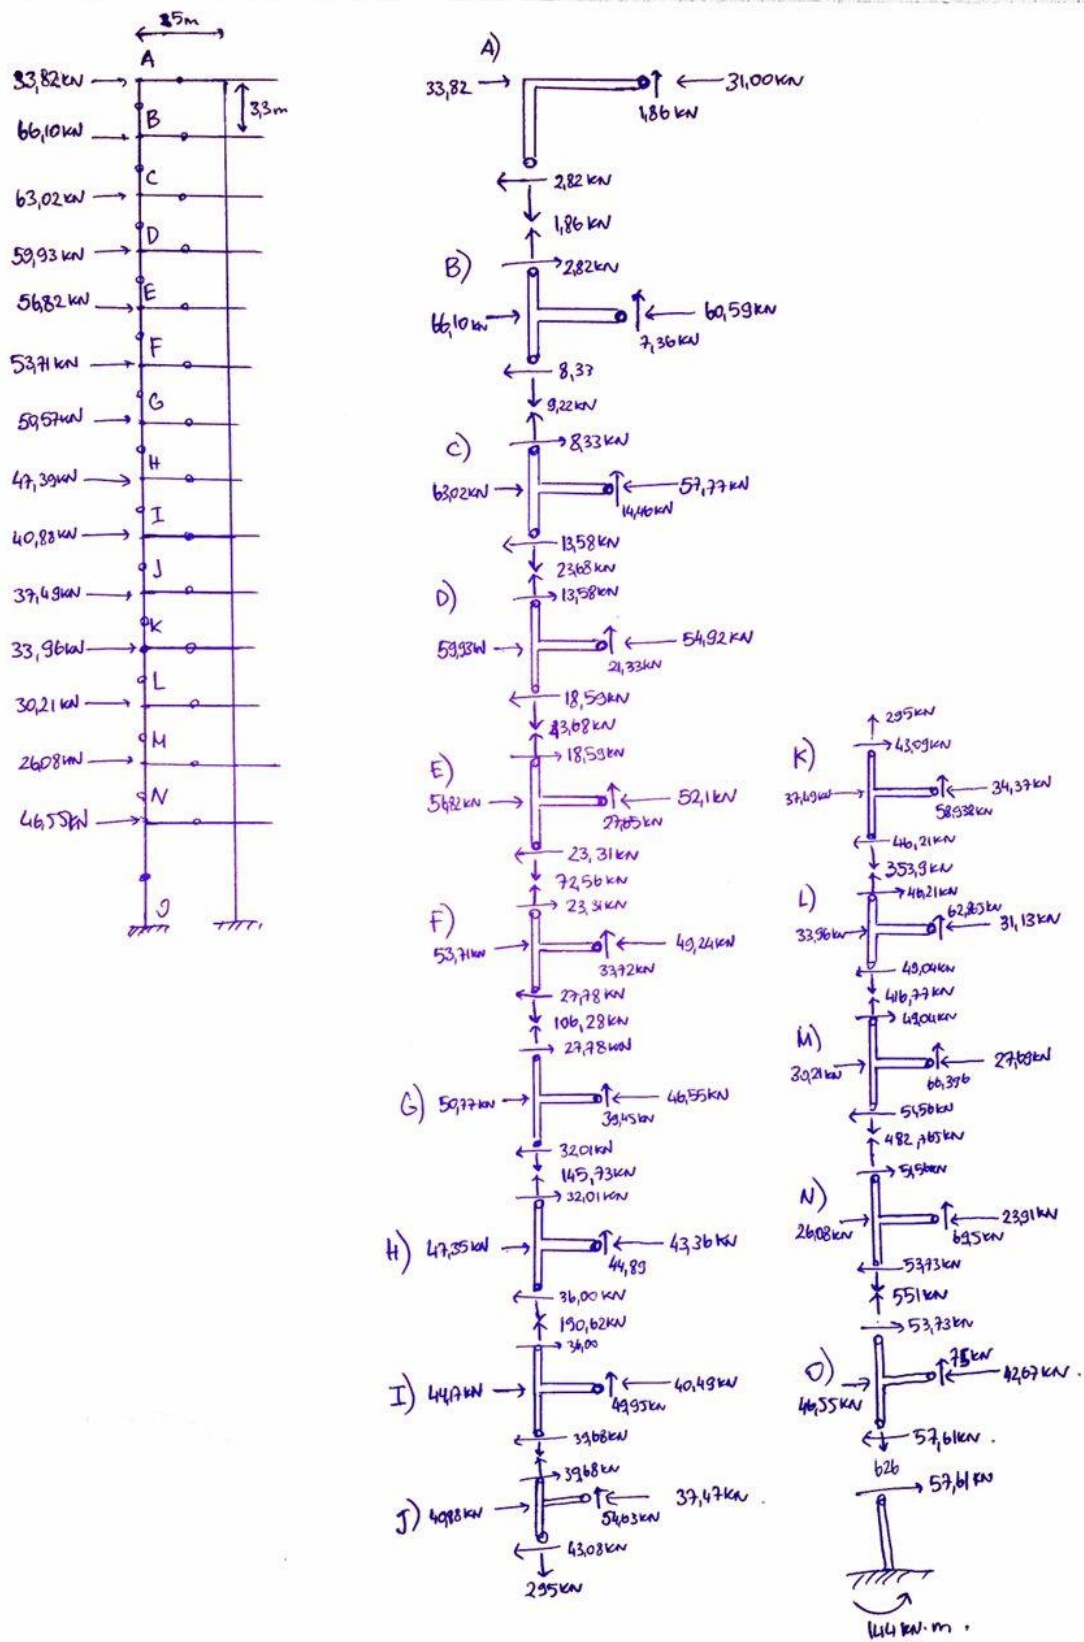 5m
A
33,82kN
3,3m
B
66,10kN
C
63,02kN
D
59,93kN
E
56,82kN
F
53,71kN
G
50,57kN
H
47,39kN
I
40,88kN
J
37,49kN
K
33,96kN
L
30,21kN
M
26,08kN
N
46,55kN
O
A)
33,82
31,00kN
1,86kN
2,82kN
1,86kN
B)
2,82kN
66,10kN
60,59kN
7,36kN
8,33
9,22kN
C)
8,33kN
63,02kN
57,77kN
14,46kN
13,58kN
23,68kN
D)
13,58kN
59,93kN
54,92kN
21,33kN
18,59kN
43,68kN
E)
18,59kN
56,82kN
52,1kN
27,65kN
23,31kN
72,56kN
F)
23,31kN
53,71kN
49,24kN
33,72kN
27,78kN
106,28kN
G)
27,78kN
50,77kN
46,55kN
39,45kN
32,01kN
145,73kN
H)
32,01kN
47,35kN
43,36kN
44,89
36,00kN
190,62kN
I)
36,00
44,17kN
40,49kN
49,95kN
39,68kN
J)
39,68kN
40,88kN
37,47kN.
54,63kN
43,08kN
295kN
295kN
K)
43,09kN
37,49kN
34,37kN
58,938kN
46,21kN
353,9kN
L)
46,21kN
62,865kN
33,96kN
31,13kN
49,04kN
416,77kN
M)
49,04kN
30,21kN
27,69kN
66,396
51,56kN
482,765kN
N)
51,56kN
26,08kN
23,91kN
69,5kN
53,73kN
551kN
53,73kN
O)
75kN
46,55kN
42,67kN.
57,61kN.
626
57,61kN
144kN.m.